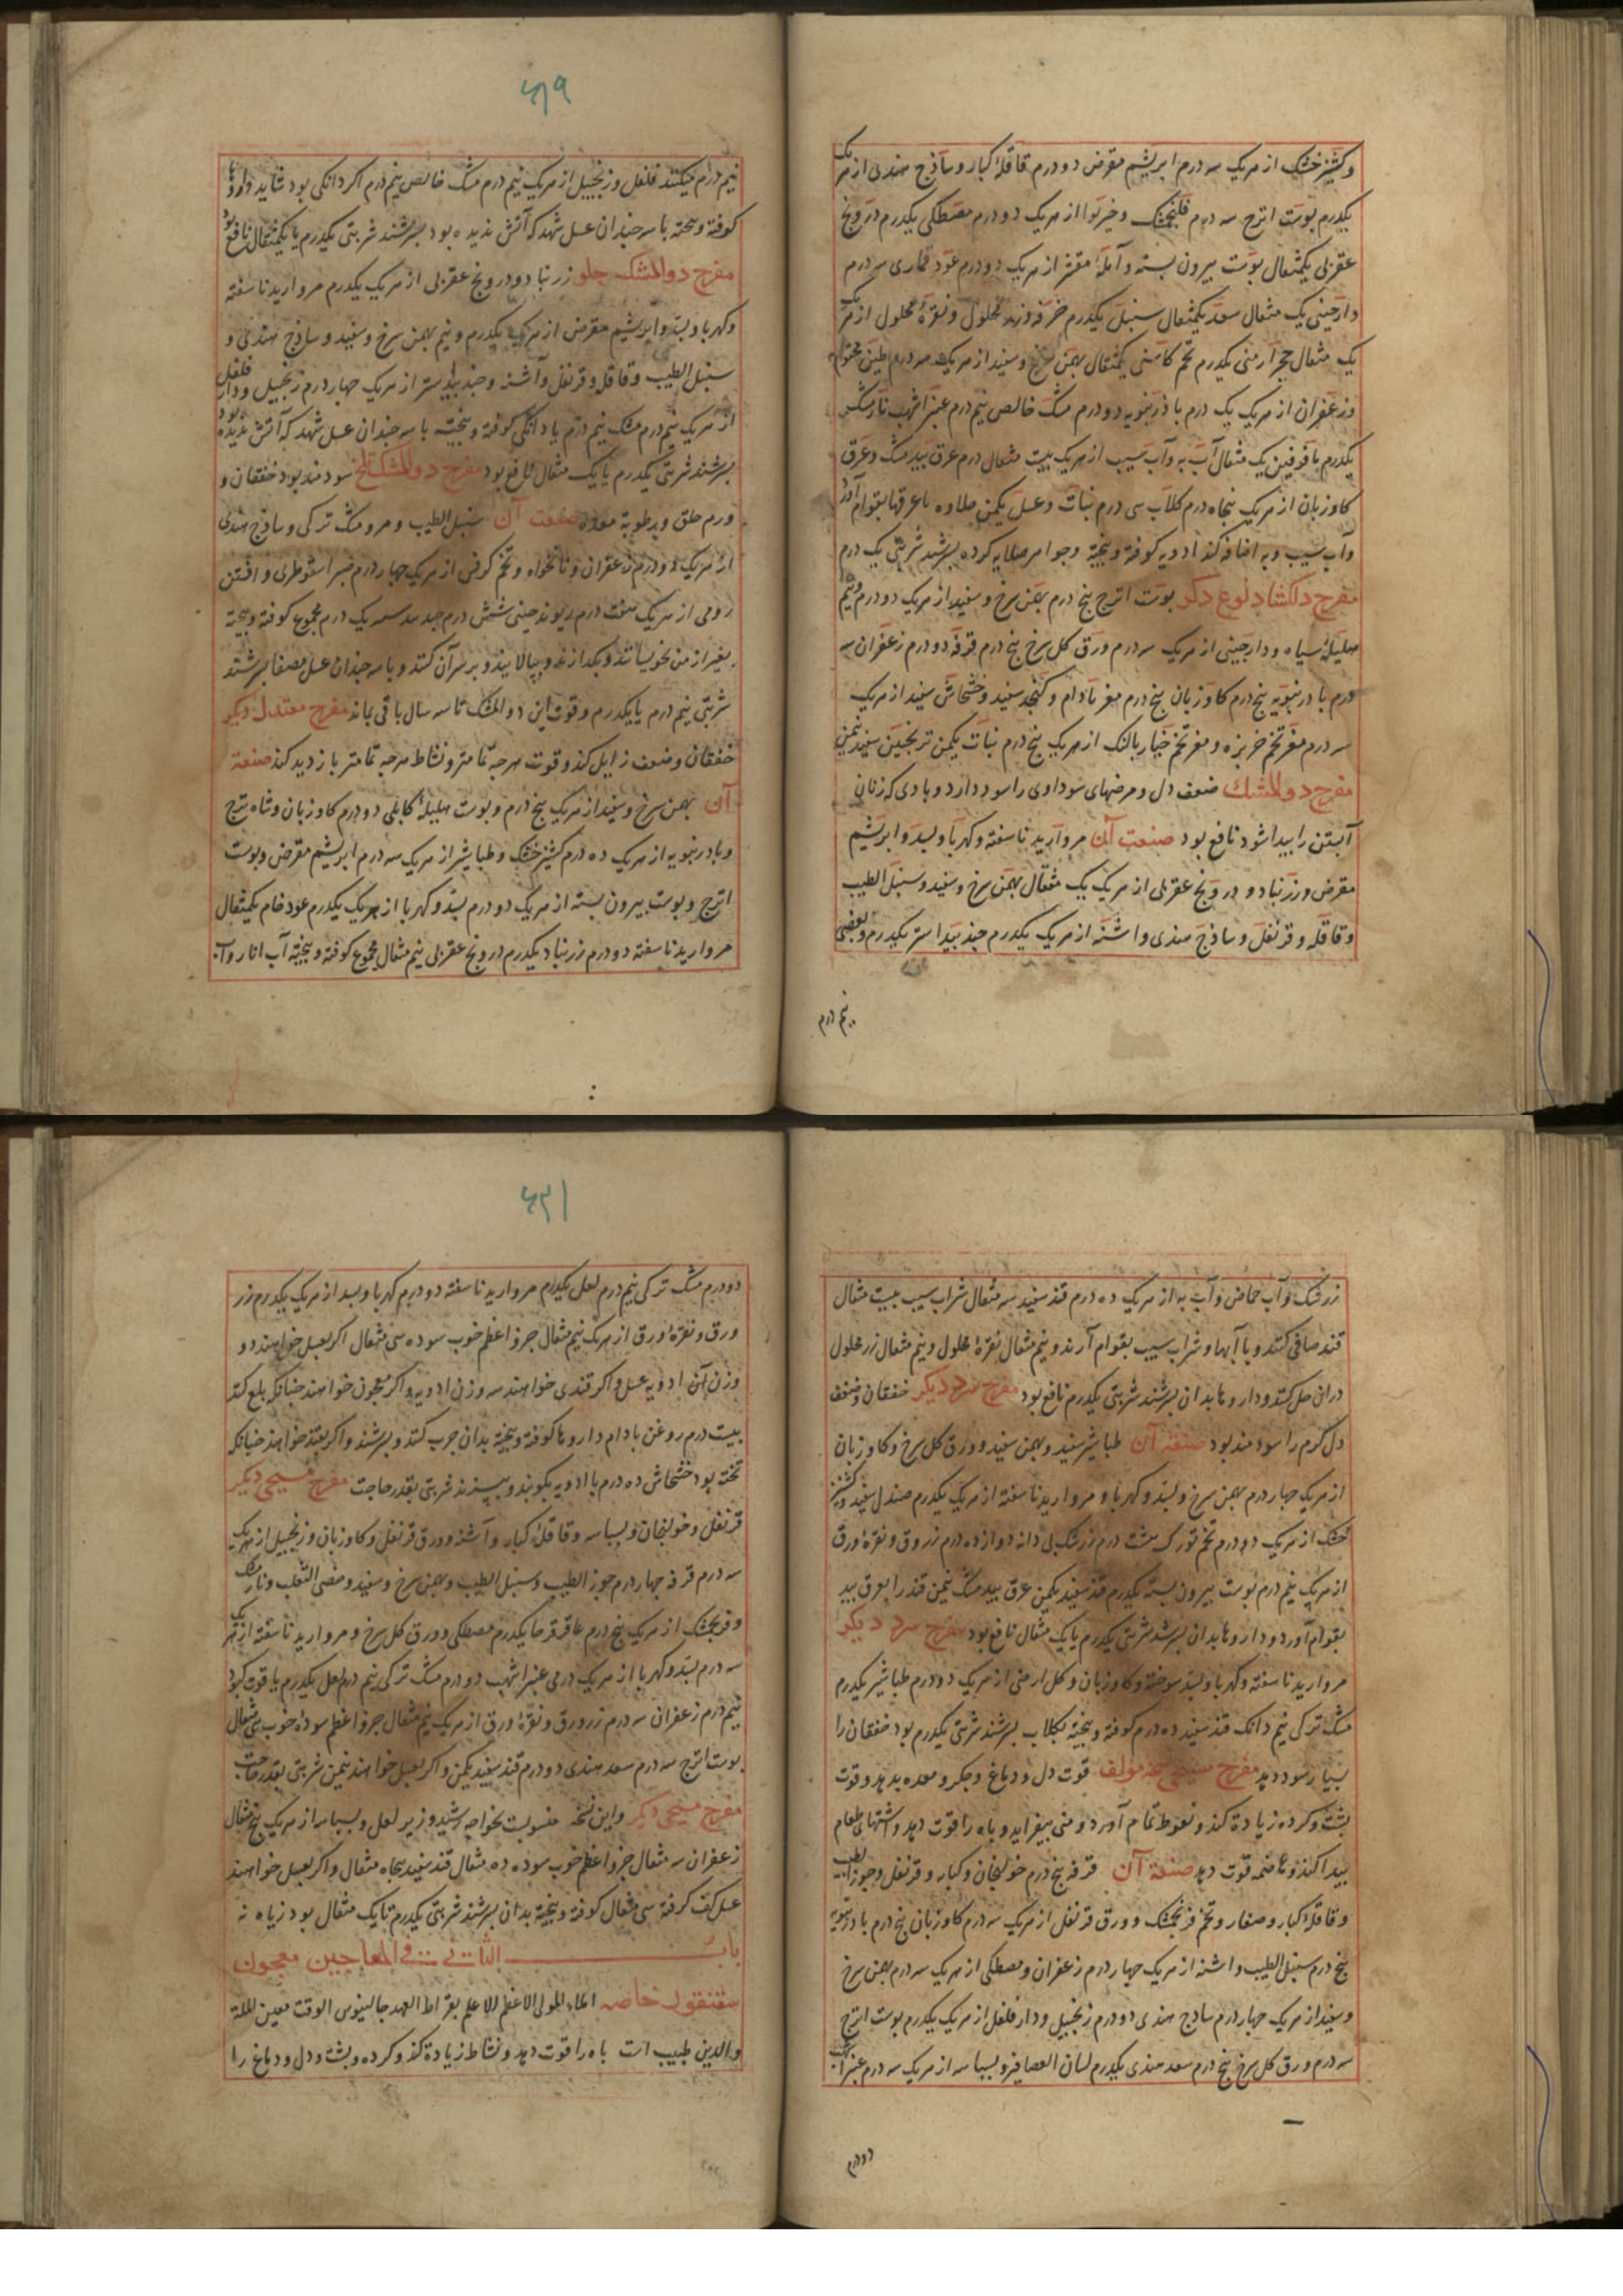 وکشنیز خشک از هریک سه درم ابریشم مقرض دو درم قاقلهٔ کبار و ساذج هندی از هریک
یکدرم پوست اترج سه درم فلنجمشک و خیربوا از هریک دو درم مصطکی یکدرم درونج
عقربی یکمثقال پوست بیرون بسته و آملهٔ مقشر از هریک دو درم عود قماری سه درم
دارچینی یک مثقال سعد یکمثقال سنبل یکدرم خرفه وزر محلول و نقرهٔ محلول از هریک
یک مثقال حجر ارمنی یکدرم تخم کاسنی یکمثقال بهمن سرخ و سفید از هریک سه درم طین مختوم
وزعفران از هریک یک درم بادرنبویه دو درم مشک خالص نیم درم عنبر اشهب نارمشک
یکدرم یاقوتین یک مثقال آب به و آب سیب از هریک بیست مثقال درم عرق بیدمشک و عرق
کاوزبان از هریک پنجاه درم کلاب سی درم نبات و عسل یکمن حلاوه با عرقها بقوام آورد
وآب سیب و به اضافه کند ادویه کوفته و بیخته و جواهر صلایه کرده بسرشد شربتی یک درم
مفرح دلکشاد نوع دکر پوست اترج پنج درم بهمن سرخ و سفید از هریک دو درم و نیم
هلیلهٔ سیاه و دارچینی از هریک سه درم ورق کل سرخ پنج درم قرفه دو درم زعفران سه
درم بادرنبویه پنج درم کاوزبان پنج درم مغز بادام و کنجد سفید و خشخاش سفید از هریک
سه درم مغز تخم خربزه و مغز تخم خیار بالنک از هریک پنج درم نبات یکمن ترنجبین سفید نیمن
مفرح دوالمشک ضعف دل و مرضهای سوداوی را سود دارد و بادی که زنان
آبستن را پیدا شود نافع بود صنعت آن مروارید ناسفته و کهربا و بسد و ابریشم
مقرض و زرنباد و درونج عقربی از هریک یک مثقال بهمن سرخ و سفید و سنبل الطیب
وقاقله و قرنفل و ساذج هندی و اشنه از هریک یکدرم جندبیدستر یکدرم و بعضی
نیم درم
۶۱۹
نیم درم میکنند فلفل و زنجبیل از هریک نیم درم مشک خالص نیم درم اکر دانکی بود شاید داروها
کوفته و بیخته با سه چندان عسل شهد که آتش ندیده بود بسرشند شربتی یکدرم یا یکمثقال نافع بود
مفرح دوالمشک حلو زرنباد و درونج عقربی از هریک یکدرم مروارید ناسفته
وکهربا و بسد و ابریشم مقرض از هریک یکدرم و نیم بهمن سرخ و سفید و ساذج هندی و
سنبل الطیب و قاقله و قرنفل و آشنه و جندبیدستر از هریک چهار درم زنجبیل و دارفلفل
از هریک نیم درم مشک نیم درم یا دانکی کوفته و بیخته با سه چندان عسل شهد که آتش ندیده بود
بسرشند شربتی یکدرم یا یک مثقال نافع بود مفرح دوالمشک تلخ سودمند بود خفقان و
ورم حلق و بدطوبة معده صنعت آن سنبل الطیب و مرو مشک ترکی و ساذج هندی
از هریک دو درم زعفران و نانخواه و تخم کرفس از هریک چهار درم صبر اسقوطری و افسنتین
رومی از هریک هفت درم ریوند چینی شش درم جندبیدستر یک درم مجموع کوفته و بیخته
بغیر از من بخویسانند و بکدازند و بپالایند و برسر آن کنند و با سه چندان عسل مصفا بسرشند
شربتی نیم درم یا یکدرم وقوت این دوالمشک تا سه سال باقی بماند مفرح معتدل دیکر
خفقان و ضعف زایل کند و قوت هرچه تمامتر و نشاط هرچه تمامتر بازدید کند صنعة
آن بهمن سرخ و سفید از هریک پنج درم و پوست هلیلهٔ کابلی دو درم کاوزبان و شاهترج
وبادرنبویه از هریک ده درم کشنیز خشک و طباشیر از هریک سه درم ابریشم مقرض و پوست
اترج و پوست بیرون بسته از هریک دو درم بسد و کهربا از هریک یکدرم عود خام یکمثقال
مروارید ناسفته دو درم زرنباد یکدرم درونج عقربی نیم مثقال مجموع کوفته و بیخته آب انار و آب
زرشک و آب حماض و آب به از هریک ده درم قند سفید سه مثقال شراب سیب بیست مثقال
قند صافی کنند و با آبها و شراب سیب بقوام آرند و نیم مثقال نقرهٔ محلول و نیم مثقال زر محلول
دران حل کنند و داروها بدان بسرشند شربتی یکدرم نافع بود مفرح سرد دیکر خفقان و ضعف
دل کرم را سودمند بود صنعة آن طباشیر سفید و بهمن سفید و ورق کل سرخ و کاوزبان
از هریک چهار درم بهمن سرخ و بسد و کهربا و مروارید ناسفته از هریک یکدرم صندل سفید و کشنیز
خشک از هریک دو درم تخم تورک هشت درم زرشک بی دانه دوازده درم زر ورق و نقرهٔ ورق
از هریک نیم درم پوست بیرون بسته یکدرم قند سفید یکمن عرق بیدمشک نیمن قند را بعرق بید
بقوام آورد و داروها بدان بسرشد شربتی یکدرم یا یک مثقال نافع بود مفرح سرد دیکر
مروارید ناسفته و کهربا و بسد سوخته و کاوزبان و کل ارمنی از هریک دو درم طباشیر یکدرم
مشک ترکی نیم دانک قند سفید ده درم کوفته و بیخته بکلاب بسرشند شربتی یکدرم بود خفقان را
بسیار سود دهد مفرح مسیحی جهة مولف قوت دل و دماغ و جکر و معده بدهد و قوت
پشت و کرده زیادة کند و نعوظ تمام آورد و منی بیفزاید و باه را قوت دهد و اشتهای طعام
پیدا کند و هاضمه قوت دهد صنعة آن قرفه پنج درم خولنجان و کبابه و قرنفل و جوز الطیب
وقاقلهٔ کبار و صغار و تخم فرنجمشک و ورق قرنفل از هریک سه درم کاوزبان پنج درم بادرنبویه
پنج درم سنبل الطیب و اشنه از هریک چهار درم زعفران و مصطکی از هریک سه درم بهمن سرخ
وسفید از هریک چهار درم ساذج هندی دو درم زنجبیل و دارفلفل از هریک یکدرم پوست اترج
سه درم ورق کل سرخ پنج درم سعد هندی یکدرم لسان العصافیر و بسباسه از هریک سه درم عنبر اشهب
دو درم
۶۲۱
دو درم مشک ترکی نیم درم لعل یکدرم مروارید ناسفته دو درم کهربا و بسد از هریک یکدرم زر
ورق و نقرهٔ ورق از هریک نیم مثقال جزو اعظم خوب سوده سی مثقال اکر بعسل خواهند دو
وزن آن ادویه عسل و اکر قندی خواهند سه وزن ادویه و اکر معجون خواهند چنانکه بلع کنند
بیست درم روغن بادام داروها کوفته و بیخته بدان چرب کنند و بسرشند و اکر بقند خواهند چنانکه
تخته بود خشخاش ده درم با ادویه بکوبند و ببیزند شربتی بقدر حاجت مفرح مسیحی دیکر
قرنفل و خولنجان و بسباسه و قاقلهٔ کبار و آشنه و ورق قرنفل و کاوزبان و زنجبیل از هریک
سه درم قرفه چهار درم جوز الطیب و سنبل الطیب و بهمن سرخ و سفید و خصی الثعلب و نارمشک
وفرنجمشک از هریک پنج درم عاقرقرحا یکدرم مصطکی و ورق کل سرخ و مروارید ناسفته از هریک
سه درم بسد و کهربا از هریک درمی عنبر اشهب دو درم مشک ترکی نیم درم لعل یکدرم یاقوت کبود
نیم درم زعفران سه درم زر ورق و نقرهٔ ورق از هریک نیم مثقال جزو اعظم سودهٔ خوب سی مثقال
پوست اترج سه درم سعد هندی دو درم قند سفید یکمن و اکر بعسل خواهند نیمن شربتی بقدر حاجت
مفرح مسیحی دیکر و این نسخه منسوبست بخواجه رشید وزیر لعل و بسباسه از هریک پنج مثقال
زعفران سه مثقال جزو اعظم خوب سوده ده مثقال قند سفید پنجاه مثقال و اکر بعسل خواهند
عسل کف کرفته سی مثقال کوفته و بیخته بدان بسرشند شربتی یکدرم تا یک مثقال بود زیاده نه
باب الثانی فی المعاجین معجون
سقنقور خاصه املاء المولی الاعظم الاعلم بقراط العهد جالینوس الوقت معین الملة
والدین طبیب است باه را قوت دهد و نشاط زیادة کند و کرده و پشت و دل و دماغ را